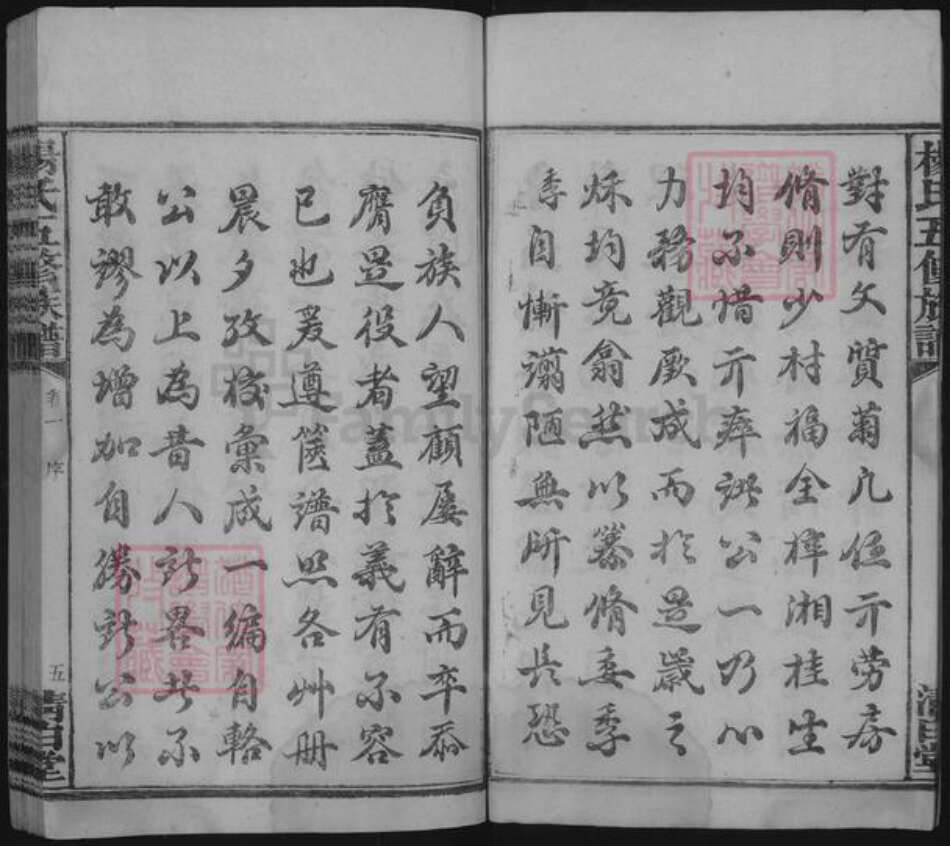 楊氏五修族譜
清白堂
對有文質菊九伍亓勞房
脩則少村福全梓湘桂生
均不惜亓瘁諸公一乃心
力務觀厥成而於是歲之
秌均竟翕然以纂脩委季
季自慚譾陋無所見長恐
負族人望顧屢辭而卒忝
膺是役者蓋於義有不容
已也爰遵舊譜照各艸冊
晨夕攷校彙成一編自輅
公以上為昔人所畧者不
敢謬為增加自勝諸公以
楊氏五修族譜
卷一
序
五
清白堂
FamilySearch